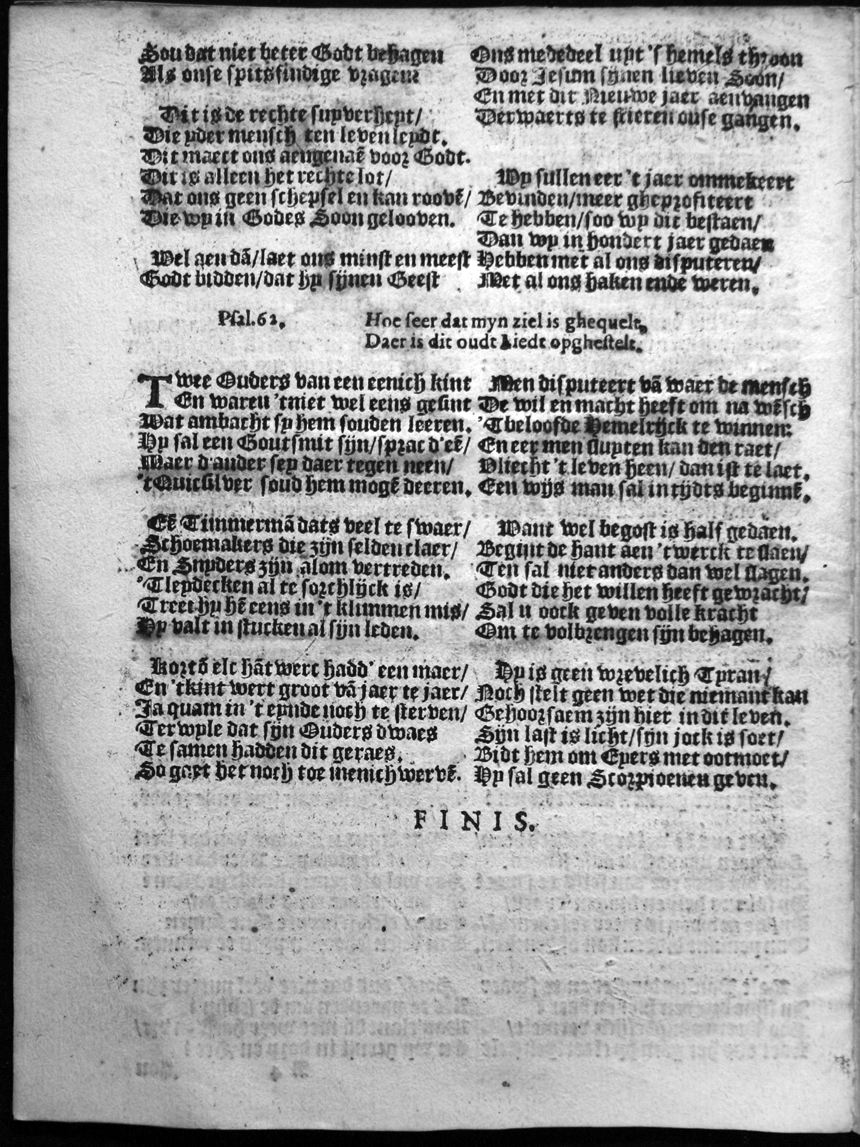 Sou dat niet beter Godt behagen
Als onse spitsfindige vragen
Dit is de rechte supverheyt/
Die yder mensch ten leven leydt.
Dit maect ons aengenaē voor Godt.
Dit is alleen het rechte lot/
Dat ons geen schepsel en kan roovē/
Die wy in Godes Soon gelooven.
Wel aen dā/laet ons minst en meest
Godt bidden/dat hy sijnen Geest
Ons mededeel uyt 's hemels throon
Door Jesum sijnen lieven Soon/
En met dit Nieuwe jaer aenvangen
Derwaerts te stieren onse gangen.
Wy sullen eer 't jaer ommekeert
Bevinden/meer gheprofiteert
Te hebben/soo wy dit bestaen/
Dan wy in hondert jaer gedaen
Hebben met al ons disputeren/
Met al ons haken ende weren.
Psal.62.
Hoe seer dat myn ziel is ghequelt,
Daer is dit oudt Liedt opghestelt.
Twee Ouders van een eenich kint
En waren 'tniet wel eens gesint
Wat ambacht sy hem souden leeren.
Hy sal een Goutsmit sijn/sprac d'eē/
Waer d'ander sey daer tegen neen/
't Quicsilver soud hem mogē deeren.
Eē Timmermā dats veel te swaer/
Schoemakers die zijn selden claer/
En Snyders zijn alom vertreden.
'Tleydecken al te sorchlijck is/
Treet hy hē eens in 't klimmen mis/
Hy valt in stucken al sijn leden.
Kortō elc hātwerc hadd' een maer/
En 'tkint wert groot vā jaer te jaer/
Ja quam in 't eynde noch te sterven/
Terwyle dat sijn Ouders dwaes
Te samen hadden dit geraes.
So gaet het noch toe menichwervē.
Men disputeert vā waer de mensch
De wil en macht heeft om na wēsch
'Tbeloofde Hemelrijck te winnen:
En eer men sluyten kan den raet/
Vliecht 't leven heen/dan ist te laet.
Een wijs man sal in tijdts beginnē.
Want wel begost is half gedaen.
Begint de hant aen 'twerck te slaen/
Ten sal niet anders dan wel slagen.
Godt die het willen heeft gewracht/
Sal u oock geven volle kracht
Om te volbrengen sijn behagen.
Hy is geen wrevelich Tyran/
Noch stelt geen wet die niemant kan
Gehoorsaem zijn hier in dit leven.
Sijn last is licht/sijn jock is soet/
Bidt hem om Eyers met ootmoet/
Hy sal geen Scorpioenen geven.
FINIS.